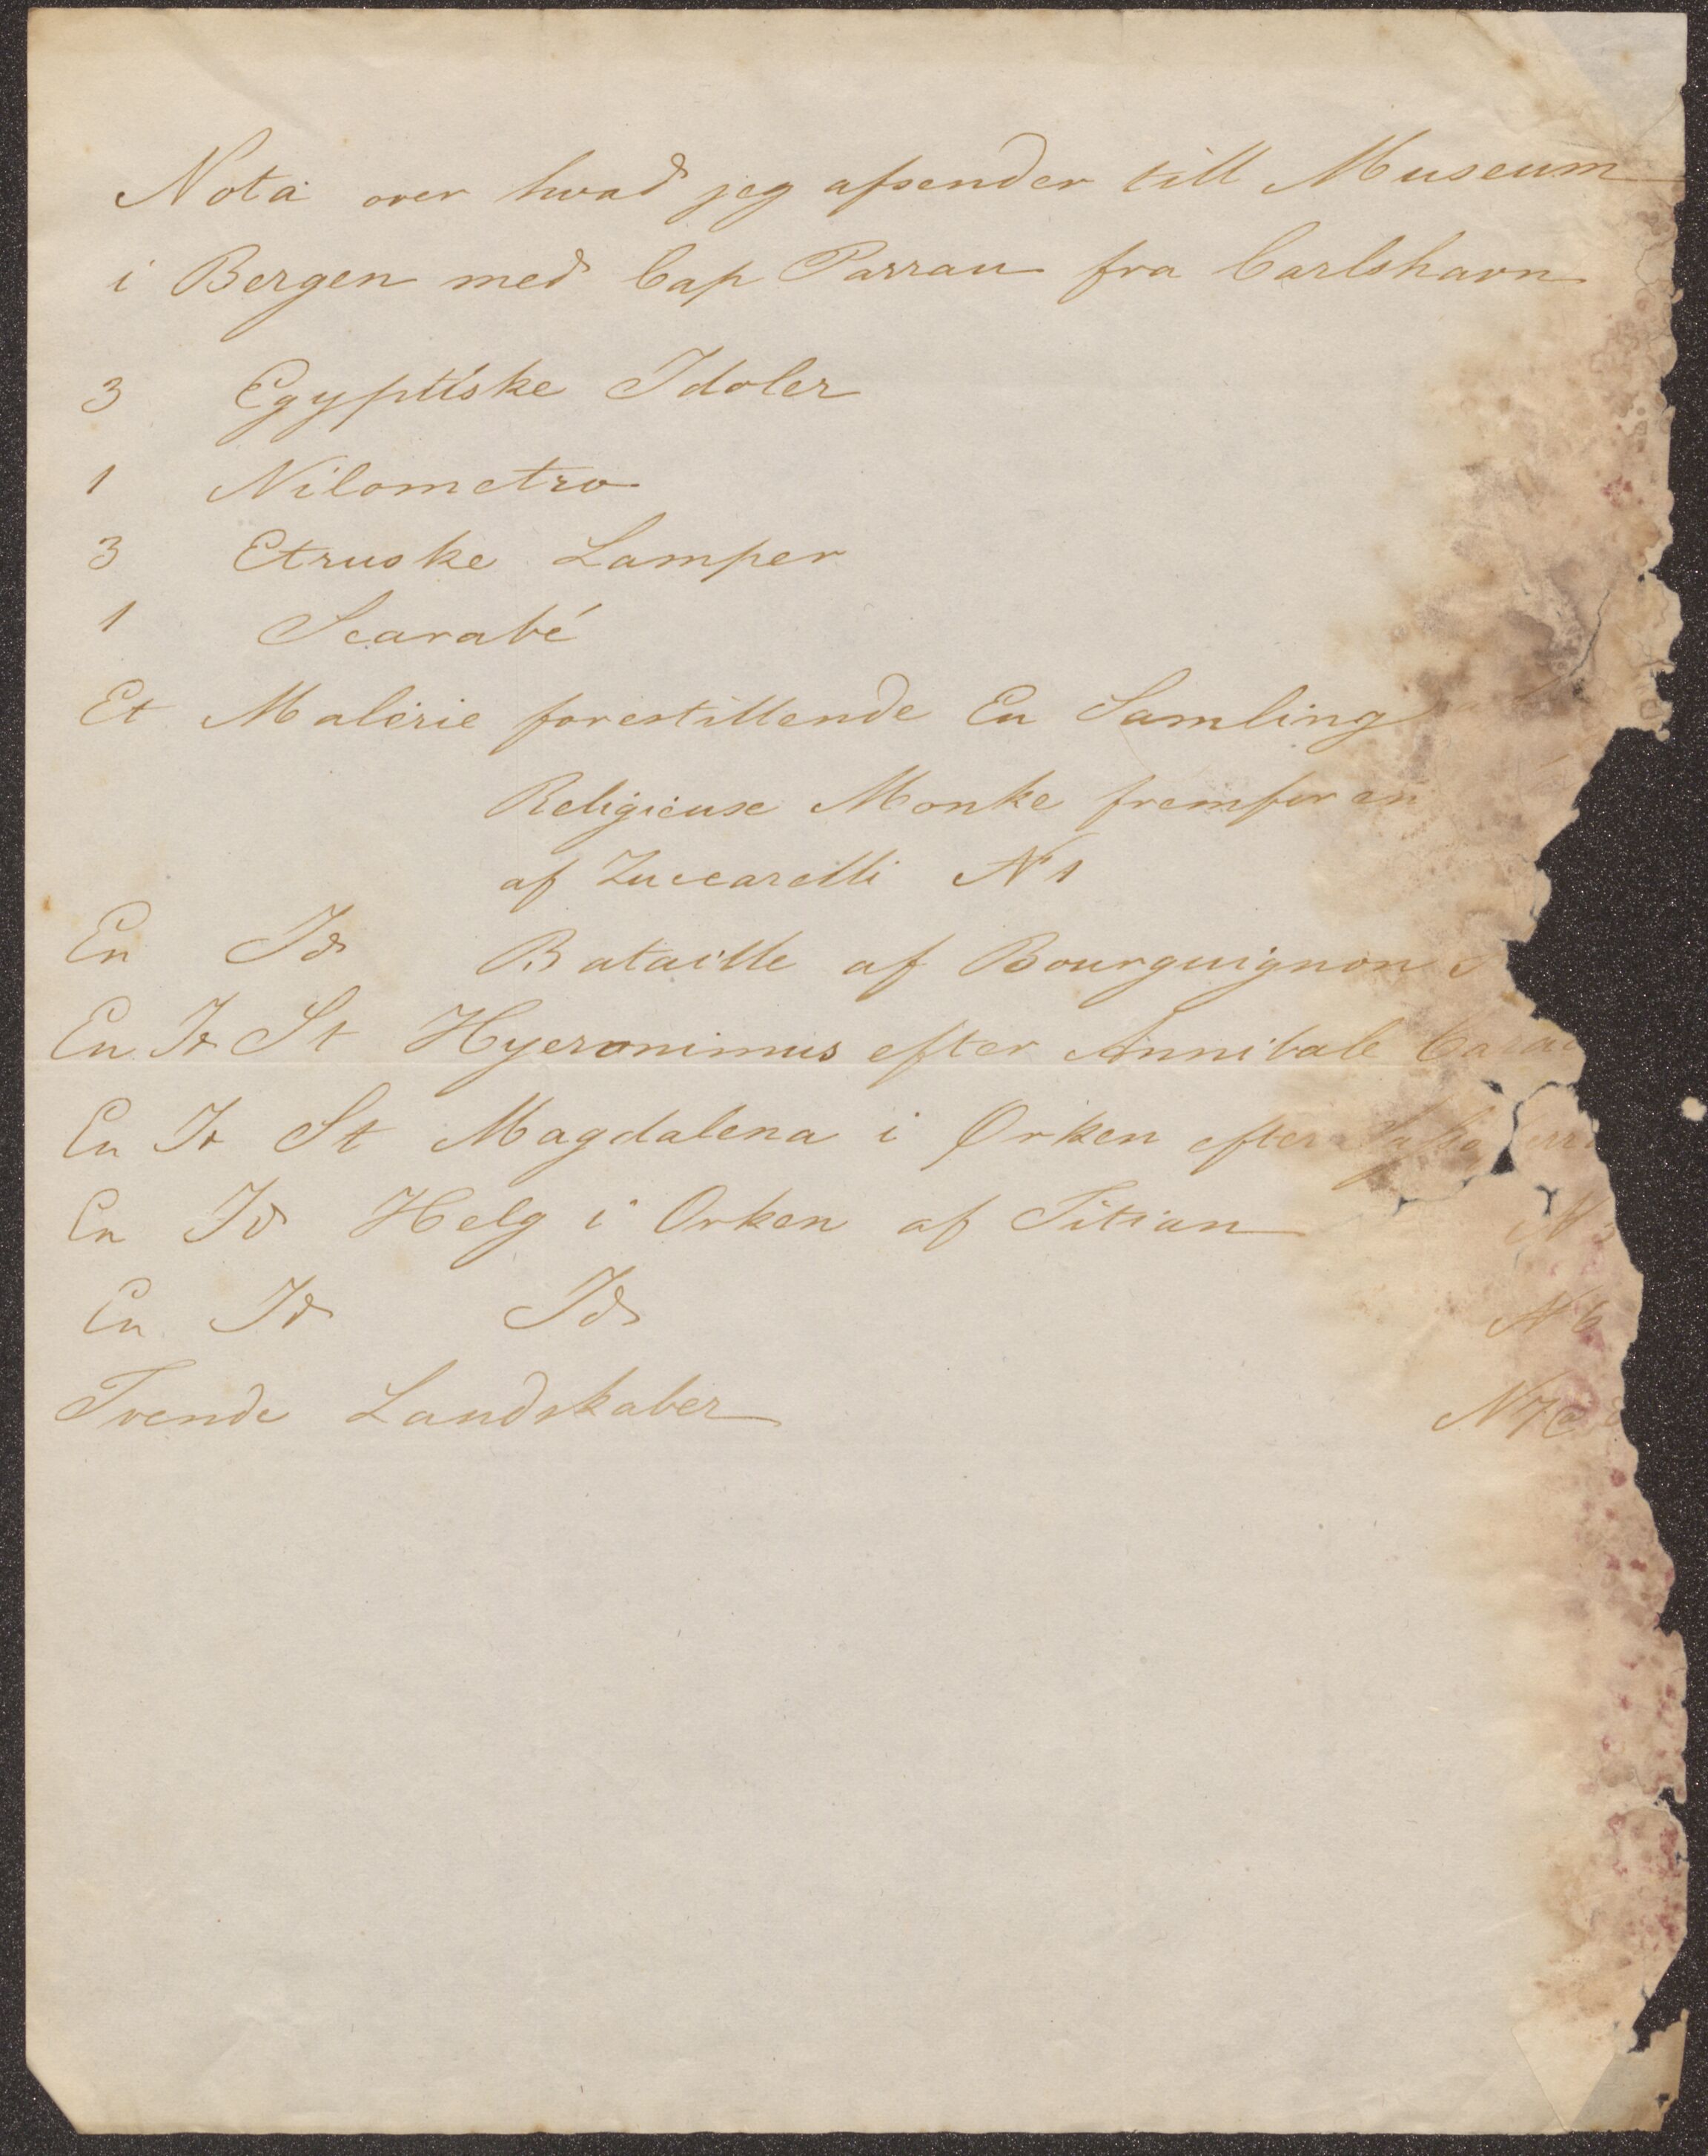 Nota over hvad jeg afsender till Museum
i Bergen med Cap Parrau fra Carlshavn
3 Egyptiske Idoler
1 Nilometro
3 Etruske Lamper
1 Scarabé
Et Malerie forestillende En Samling
Religieuse Monke fremfor en
af Zuccarelli N 1
En Id Bataille af Bourguignon
En Id St Hyeronimus efter Annibale Carac
En Id St Magdalena i Ørken efter
En Id Helg i Orken af Titian N
En Id Id N 6
Tvende Landskaber N 7 &